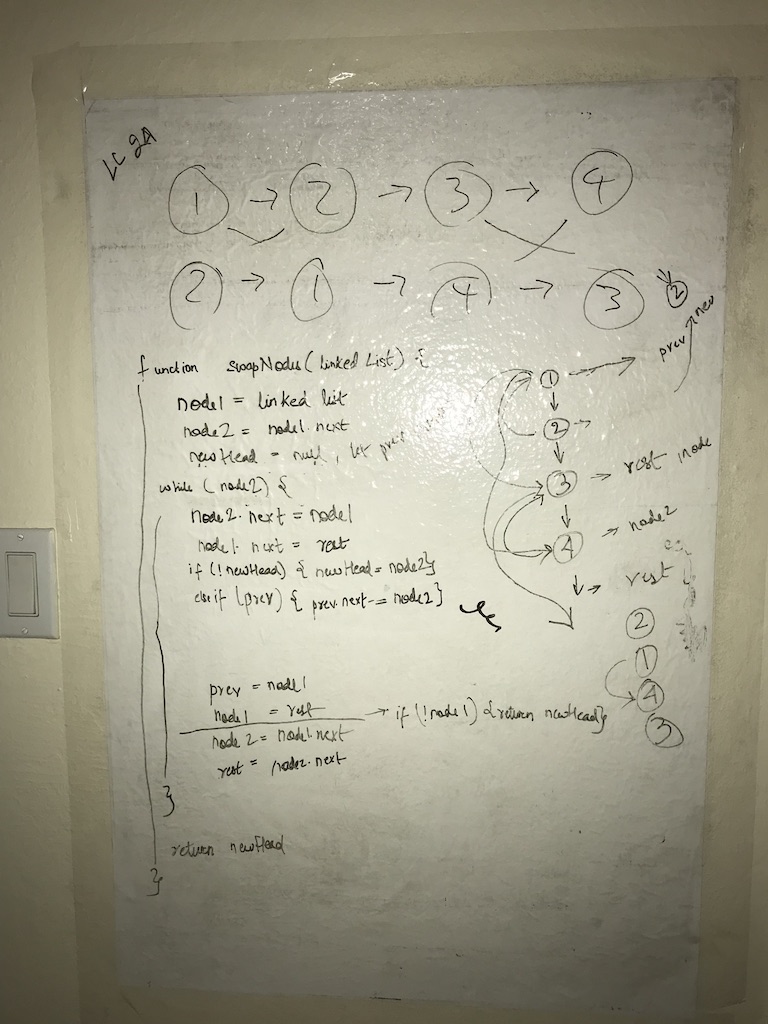 LC 24
1 → 2 → 3 → 4
2 → 1 → 4 → 3
function swapNodes( Linked List) {
node1 = linked list
node2 = node1.next
newHead = null, let prev
while ( node2) {
node2.next = node1
node1.next = rest
if (!newHead) { newHead = node2}
else if (prev) { prev.next = node2}
prev = node1
node1 = rest → if (!node1) {return newHead}
node2 = node1.next
rest = node2.next
}
return newHead
}
2
1 → prev new
↓
2 →
↓
3 → rest node
↓
4 → node2
↓ → rest
2
1
4
3